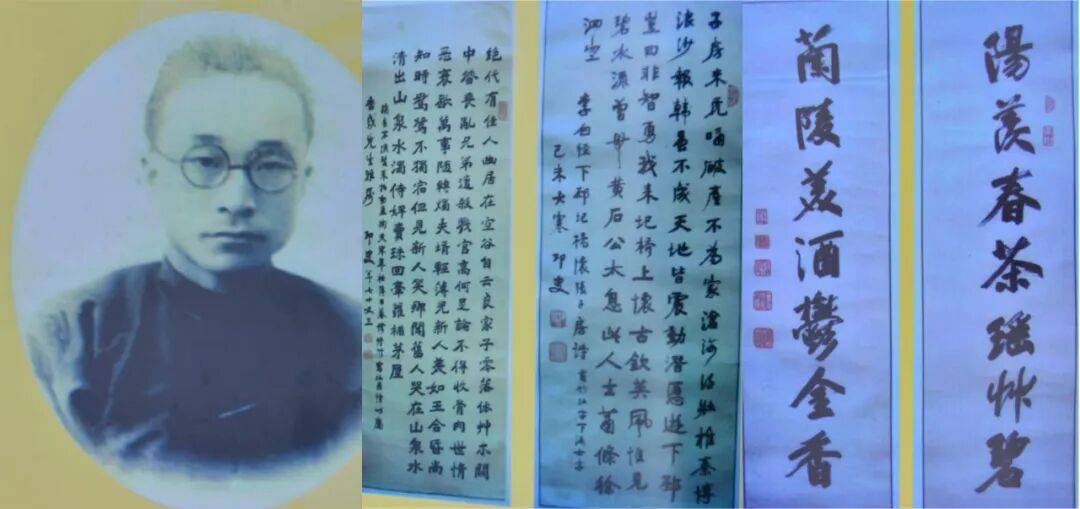 絕代有佳人幽居在空谷自云良家子零落依艸木關
中昔喪亂兄弟遭殺戮官高何足論不得收骨肉世情
惡衰歇萬事隨轉燭夫壻輕薄兒新人美如玉合昏尚
知時鴛鴦不獨宿但見新人笑那聞舊人哭在山泉水
清出山泉水濁侍婢賣珠回牽蘿補茅屋
摘花不插髮采柏動盈掬天寒翠袖薄日暮倚修竹
先生雅屬 印叟 年七十又三
子房未虎嘯破產不為家滄海得壯椎秦博
浪沙報韓雖不成天地皆震動潛匿遊下邳
豈曰非智勇我來圯橋上懷古欽英風惟見
碧水流曾無黃石公太息此人士蕭條徐
泗空
李白經下邳圯橋懷張子房詩 壯字下漏士字
己未大寒 印叟
陽羨春茶瑤艸碧
蘭陵美酒鬱金香